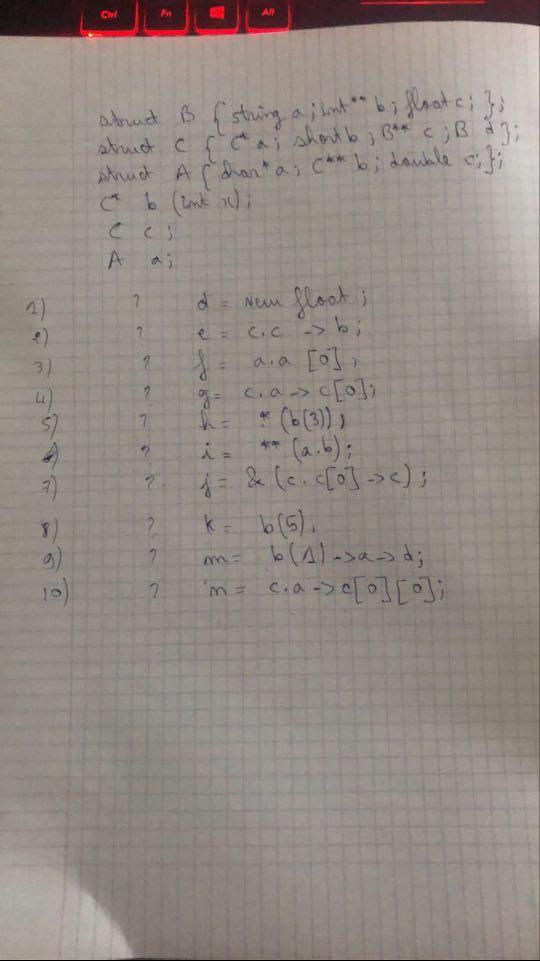 Ctrl Fn Alt
struct B { string a; int** b; float c; };
struct C { C* a; short b; B** c; B d };
struct A { char* a; C** b; double c; };
C* b (int x);
C c;
A a;
1) ? d = new float;
2) ? e = c.c -> b;
3) ? f = a.a [0];
4) ? g = c.a -> c[0];
5) ? h = * (b(3));
? i = ** (a.b);
7) ? j = & (c.c[0] -> c);
8) ? k = b(5);
9) ? m = b(1) -> a -> d;
10) ? n = c.a -> c[0][0];